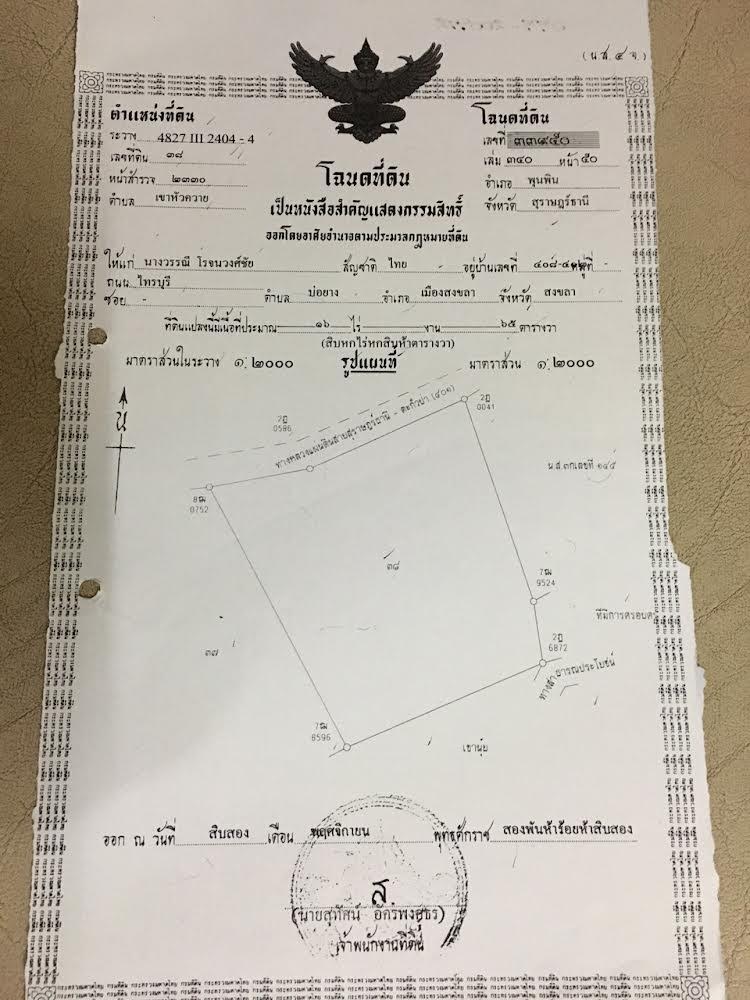 (น.ส. ๔ จ.)
ตำแหน่งที่ดิน
ระวาง 4827 III 2404 - 4
เลขที่ดิน ๓๘
หน้าสำรวจ ๒๓๓๐
ตำบล เขาหัวควาย
โฉนดที่ดิน
เลขที่ ๓๓๙๕๐
เล่ม ๓๔๐ หน้า ๕๐
อำเภอ พุนพิน
จังหวัด สุราษฎร์ธานี
โฉนดที่ดิน
เป็นหนังสือสำคัญแสดงกรรมสิทธิ์
ออกโดยอาศัยอำนาจตามประมวลกฎหมายที่ดิน
ให้แก่ นางวรรณี โรจนวงศ์ชัย สัญชาติ ไทย อยู่บ้านเลขที่ หมู่ที่
ถนน ไทรบุรี
ซอย - ตำบล บ่อยาง อำเภอ เมืองสงขลา จังหวัด สงขลา
ที่ดินแปลงนี้มีเนื้อที่ประมาณ ๑๖ ไร่ งาน ๖๕ ตารางวา
(สิบหกไร่หกสิบห้าตารางวา)
มาตราส่วนในระวาง ๑:๒๐๐๐ รูปแผนที่ มาตราส่วน ๑:๒๐๐๐
น
2ฎ
0586
ทางหลวงแผ่นดินสายสุราษฎร์ธานี - ตะกั่วป่า (๔๐๑)
2ฎ
0041
น.ส.๓ก เลขที่ ๑๔๕
8ฒ
0752
๓๘
7ฒ
9524
ที่มีการครอบคร
๓๗
2ฎ
6872
ทางสาธารณประโยชน์
7ฒ
8596
เขานุ้ย
ออก ณ วันที่ สิบสอง เดือน พฤศจิกายน พุทธศักราช สองพันห้าร้อยห้าสิบสอง
(นายสุทัศน์ อัครพงศุธร)
เจ้าพนักงานที่ดิน